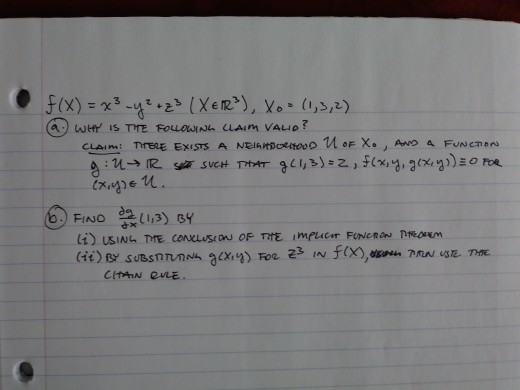 f(X) = x³ - y² + z³ (X ∈ ℝ³), X₀ = (1,3,2)
(a.) WHY IS THE FOLLOWING CLAIM VALID?
CLAIM: THERE EXISTS A NEIGHBORHOOD U OF X₀, AND A FUNCTION
g: U → ℝ SUCH THAT g(1,3) = 2, f(x,y,g(x,y)) ≡ 0 FOR
(x,y) ∈ U.
(b.) FIND ∂g/∂x (1,3) BY
(i) USING THE CONCLUSION OF THE IMPLICIT FUNCTION THEOREM
(ii) BY SUBSTITUTING g(x,y) FOR z³ IN f(X), THEN USE THE
CHAIN RULE.